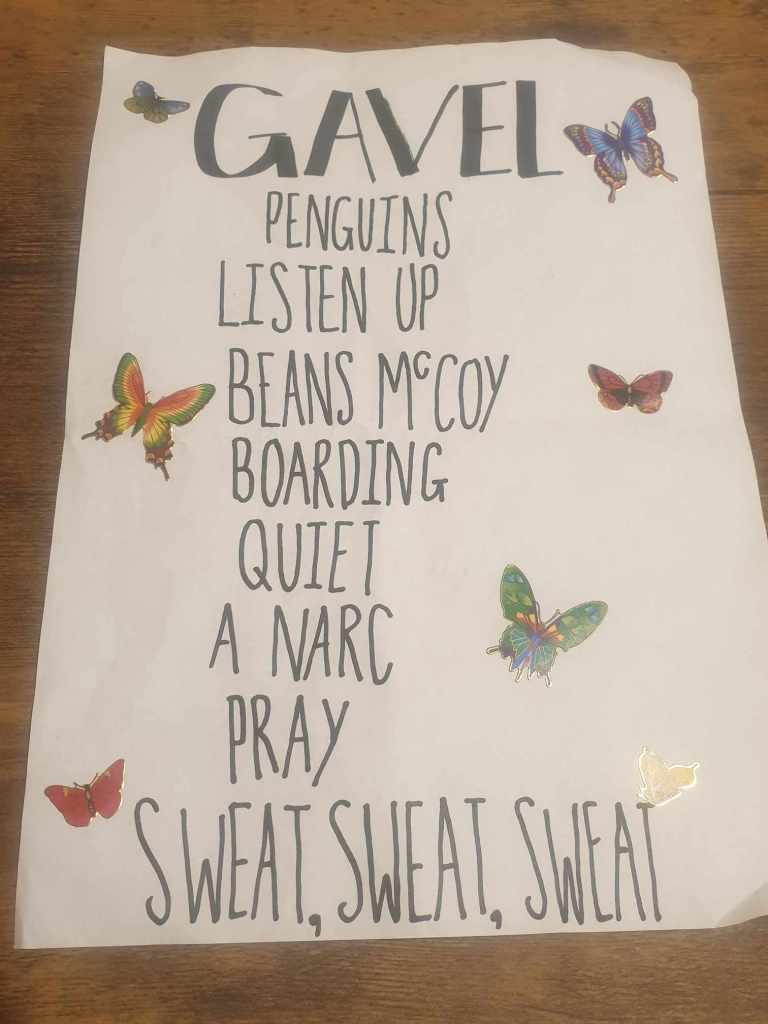 GAVEL
PENGUINS
LISTEN UP
BEANS McCOY
BOARDING
QUIET
A NARC
PRAY
SWEAT, SWEAT, SWEAT